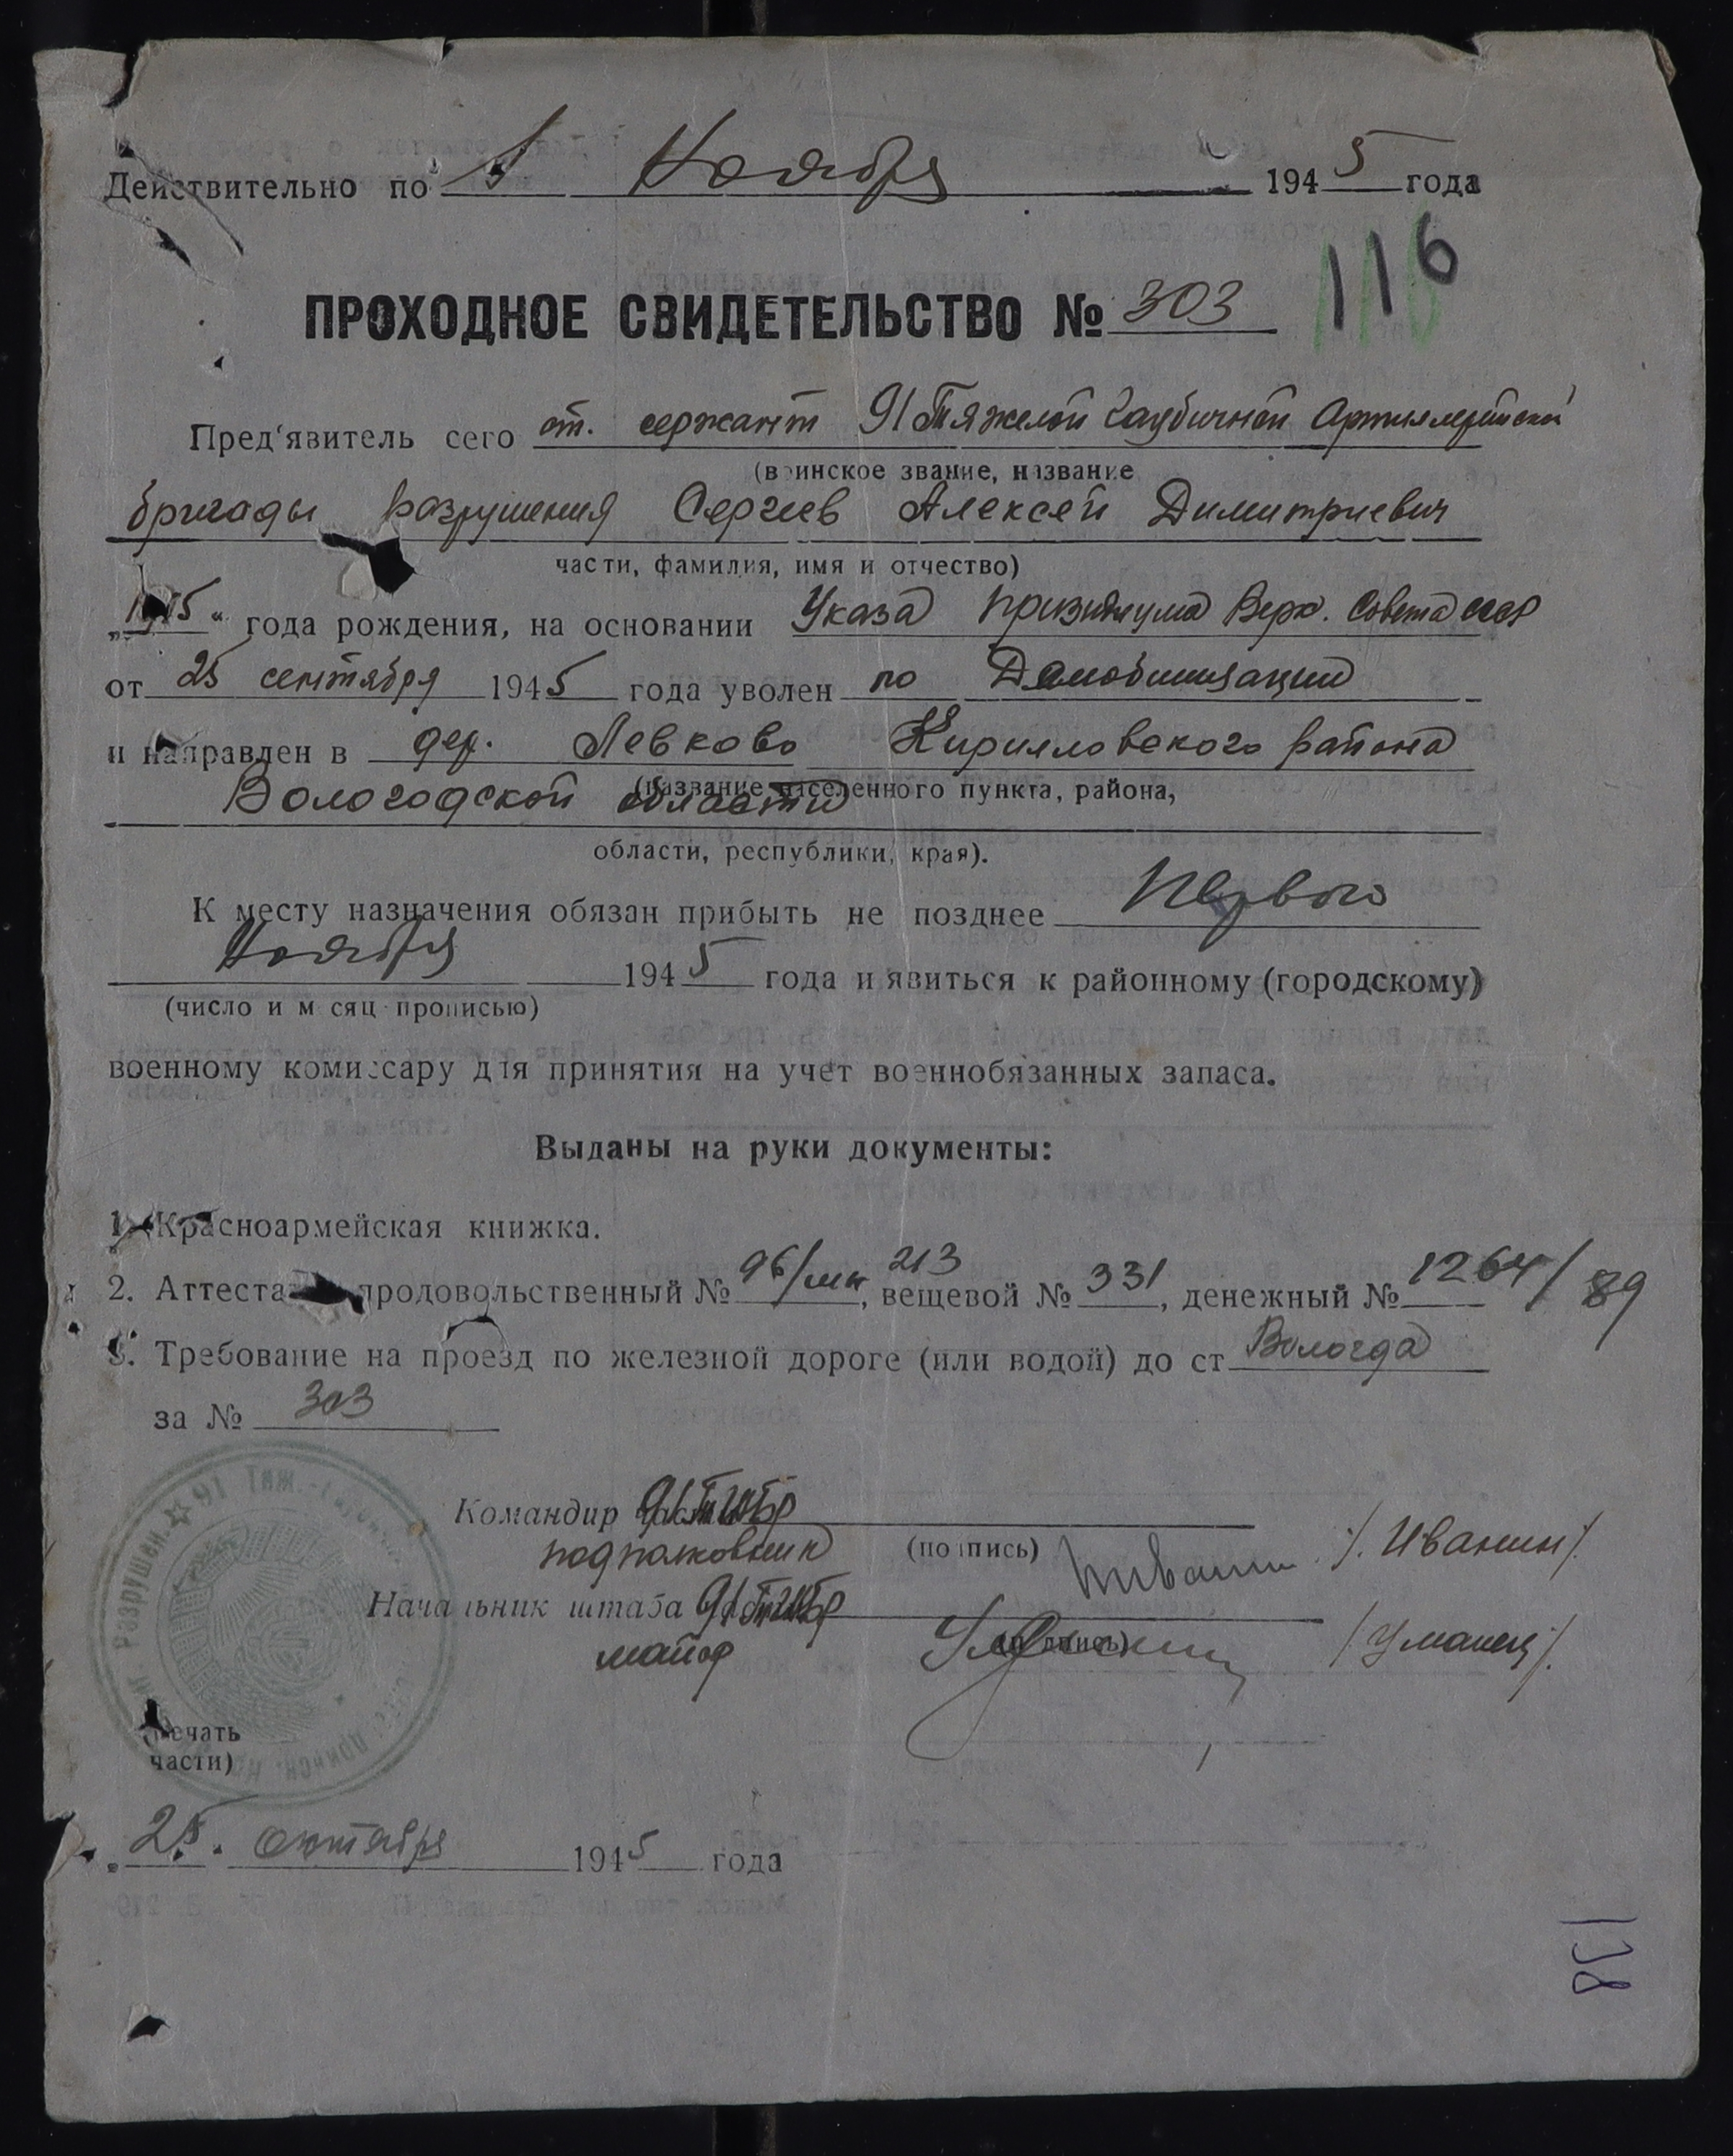 Действительно по 1 Ноября 1945 года
116
ПРОХОДНОЕ СВИДЕТЕЛЬСТВО № 303
Пред'явитель сего ст. сержант 91 Тяжелой Гаубичной Артиллерийской
(воинское звание, название
бригады разрушения Сергеев Алексей Димитриевич
части, фамилия, имя и отчество)
„1915“ года рождения, на основании Указа Призидиума Верх. Совета СССР
от 25 сентября 1945 года уволен по Демобилизации
и направлен в дер. Левково Кирилловского района
(название населенного пункта, района,
Вологодской области
области, республики, края).
К месту назначения обязан прибыть не позднее Первого
Ноября 1945 года и явиться к районному (городскому)
(число и месяц прописью)
военному комиссару для принятия на учет военнобязанных запаса.
Выданы на руки документы:
1. Красноармейская книжка.
2. Аттестат продовольственный № 96/ 213, вещевой № 331, денежный № 1264/89
3. Требование на проезд по железной дороге (или водой) до ст Вологда
за № 303
Командир 91 ТГАБр
подполковник (подпись) Иванин /. Иванин/.
Начальник штаба 91 ТГАБр
майор (подпись) /Уманец/.
91 Тяж.-Гаубичн. Разрушен.
(печать
части)
„25" октября 1945 года
138